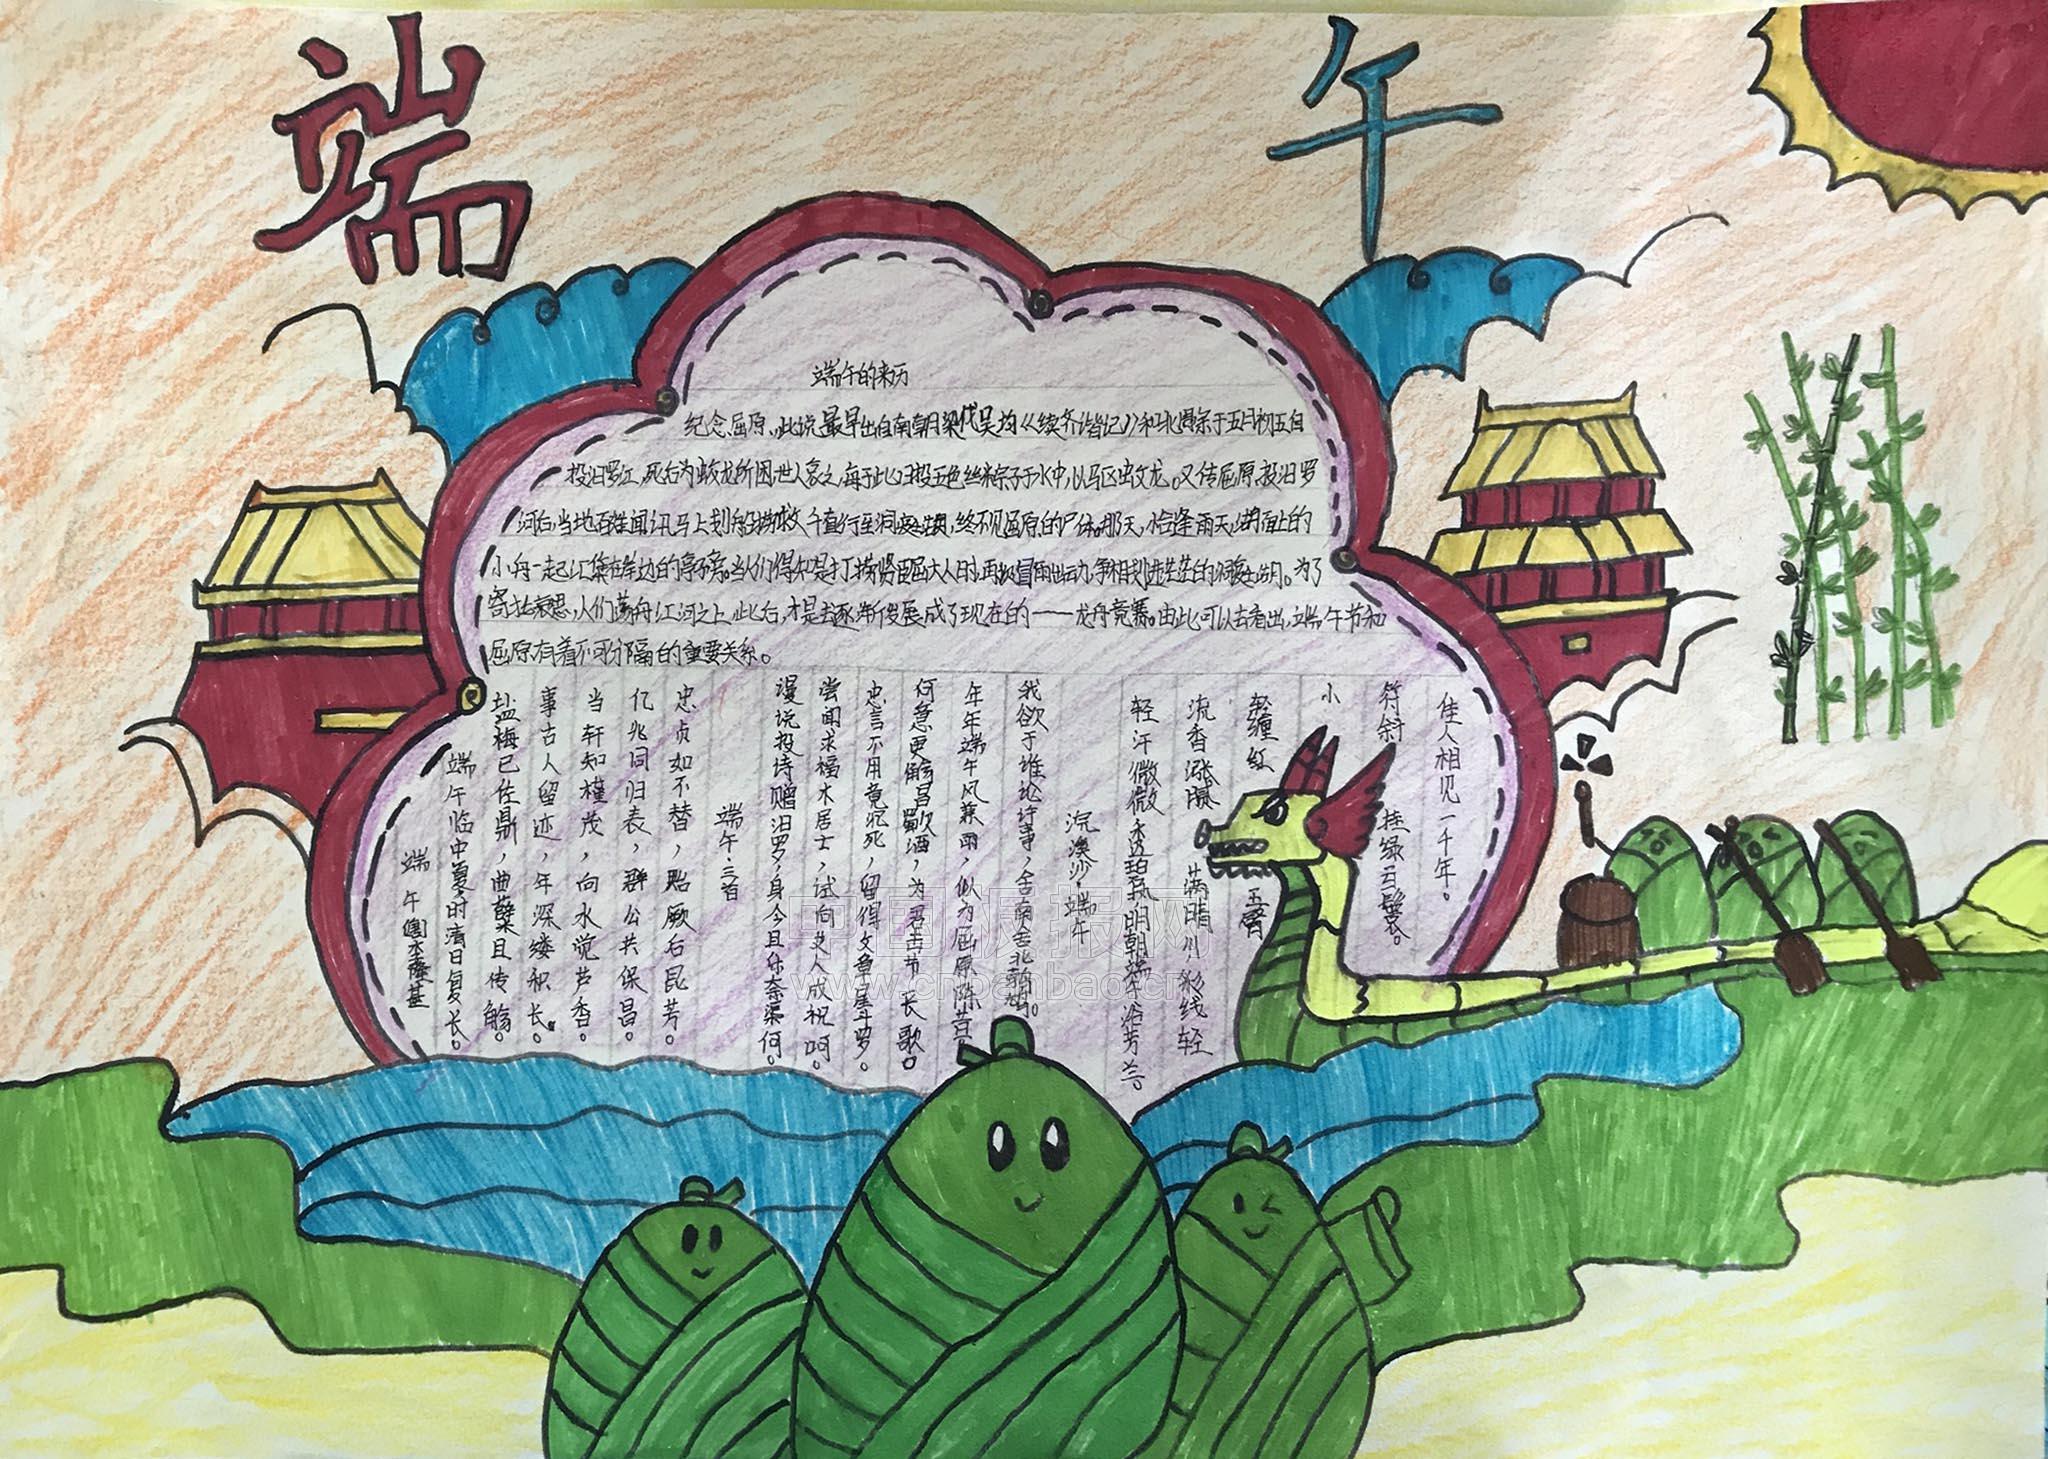 端
午
端午的来历
纪念屈原,此说最早出自南朝梁代吴均《续齐谐记》和北周宗于五月初五自
投汨罗江,死后为蛟龙所困,世人哀之,每于此日投五色丝粽子于水中,以马区出文龙。又传屈原投汨罗
河后,当地百姓闻讯马上划船捞救,千直行至洞庭湖,终不见屈原的尸体。那天,恰逢雨天,湖面上的
小舟一起汇集在岸边的亭子旁。当人们得知是打捞贤臣屈大人时,再次冒雨出动,争相划进茫茫的洞庭湖。为了
寄托哀思,人们荡舟江河之上,此后,才是去逐渐发展成了现在的——龙舟竞赛。由此可以去看出,端午节和
屈原有着不可分隔的重要关系。
端午 李隆基
端午临中夏时清日复长。
盐梅已佐鼎,曲蘖且传觞。
事古人留迹,年深缕积长。
当轩知槿茂,向水觉芦香。
亿兆同归表,群公共保昌。
忠贞如不替,贻厥后昆芳。
端午·三首
漫说投诗赠汨罗,身今且乐奈渠何。
尝闻求福木居士,试向艾人成祝呵。
忠言不用竟沉死,留得文章星斗罗。
何意更觞昌歜酒,为君击节长歌。
年年端午风兼雨,似为屈原陈昔
我欲于谁论许事,舍南舍北鹁鸠。
浣溪沙·端午
轻汗微微透碧纨明朝端午浴芳兰。
流香涨腻满晴川彩线轻
轻缠红玉臂
小
符斜挂绿云鬟。
佳人相见一千年。
中国板报网
www.cnbanbao.cn